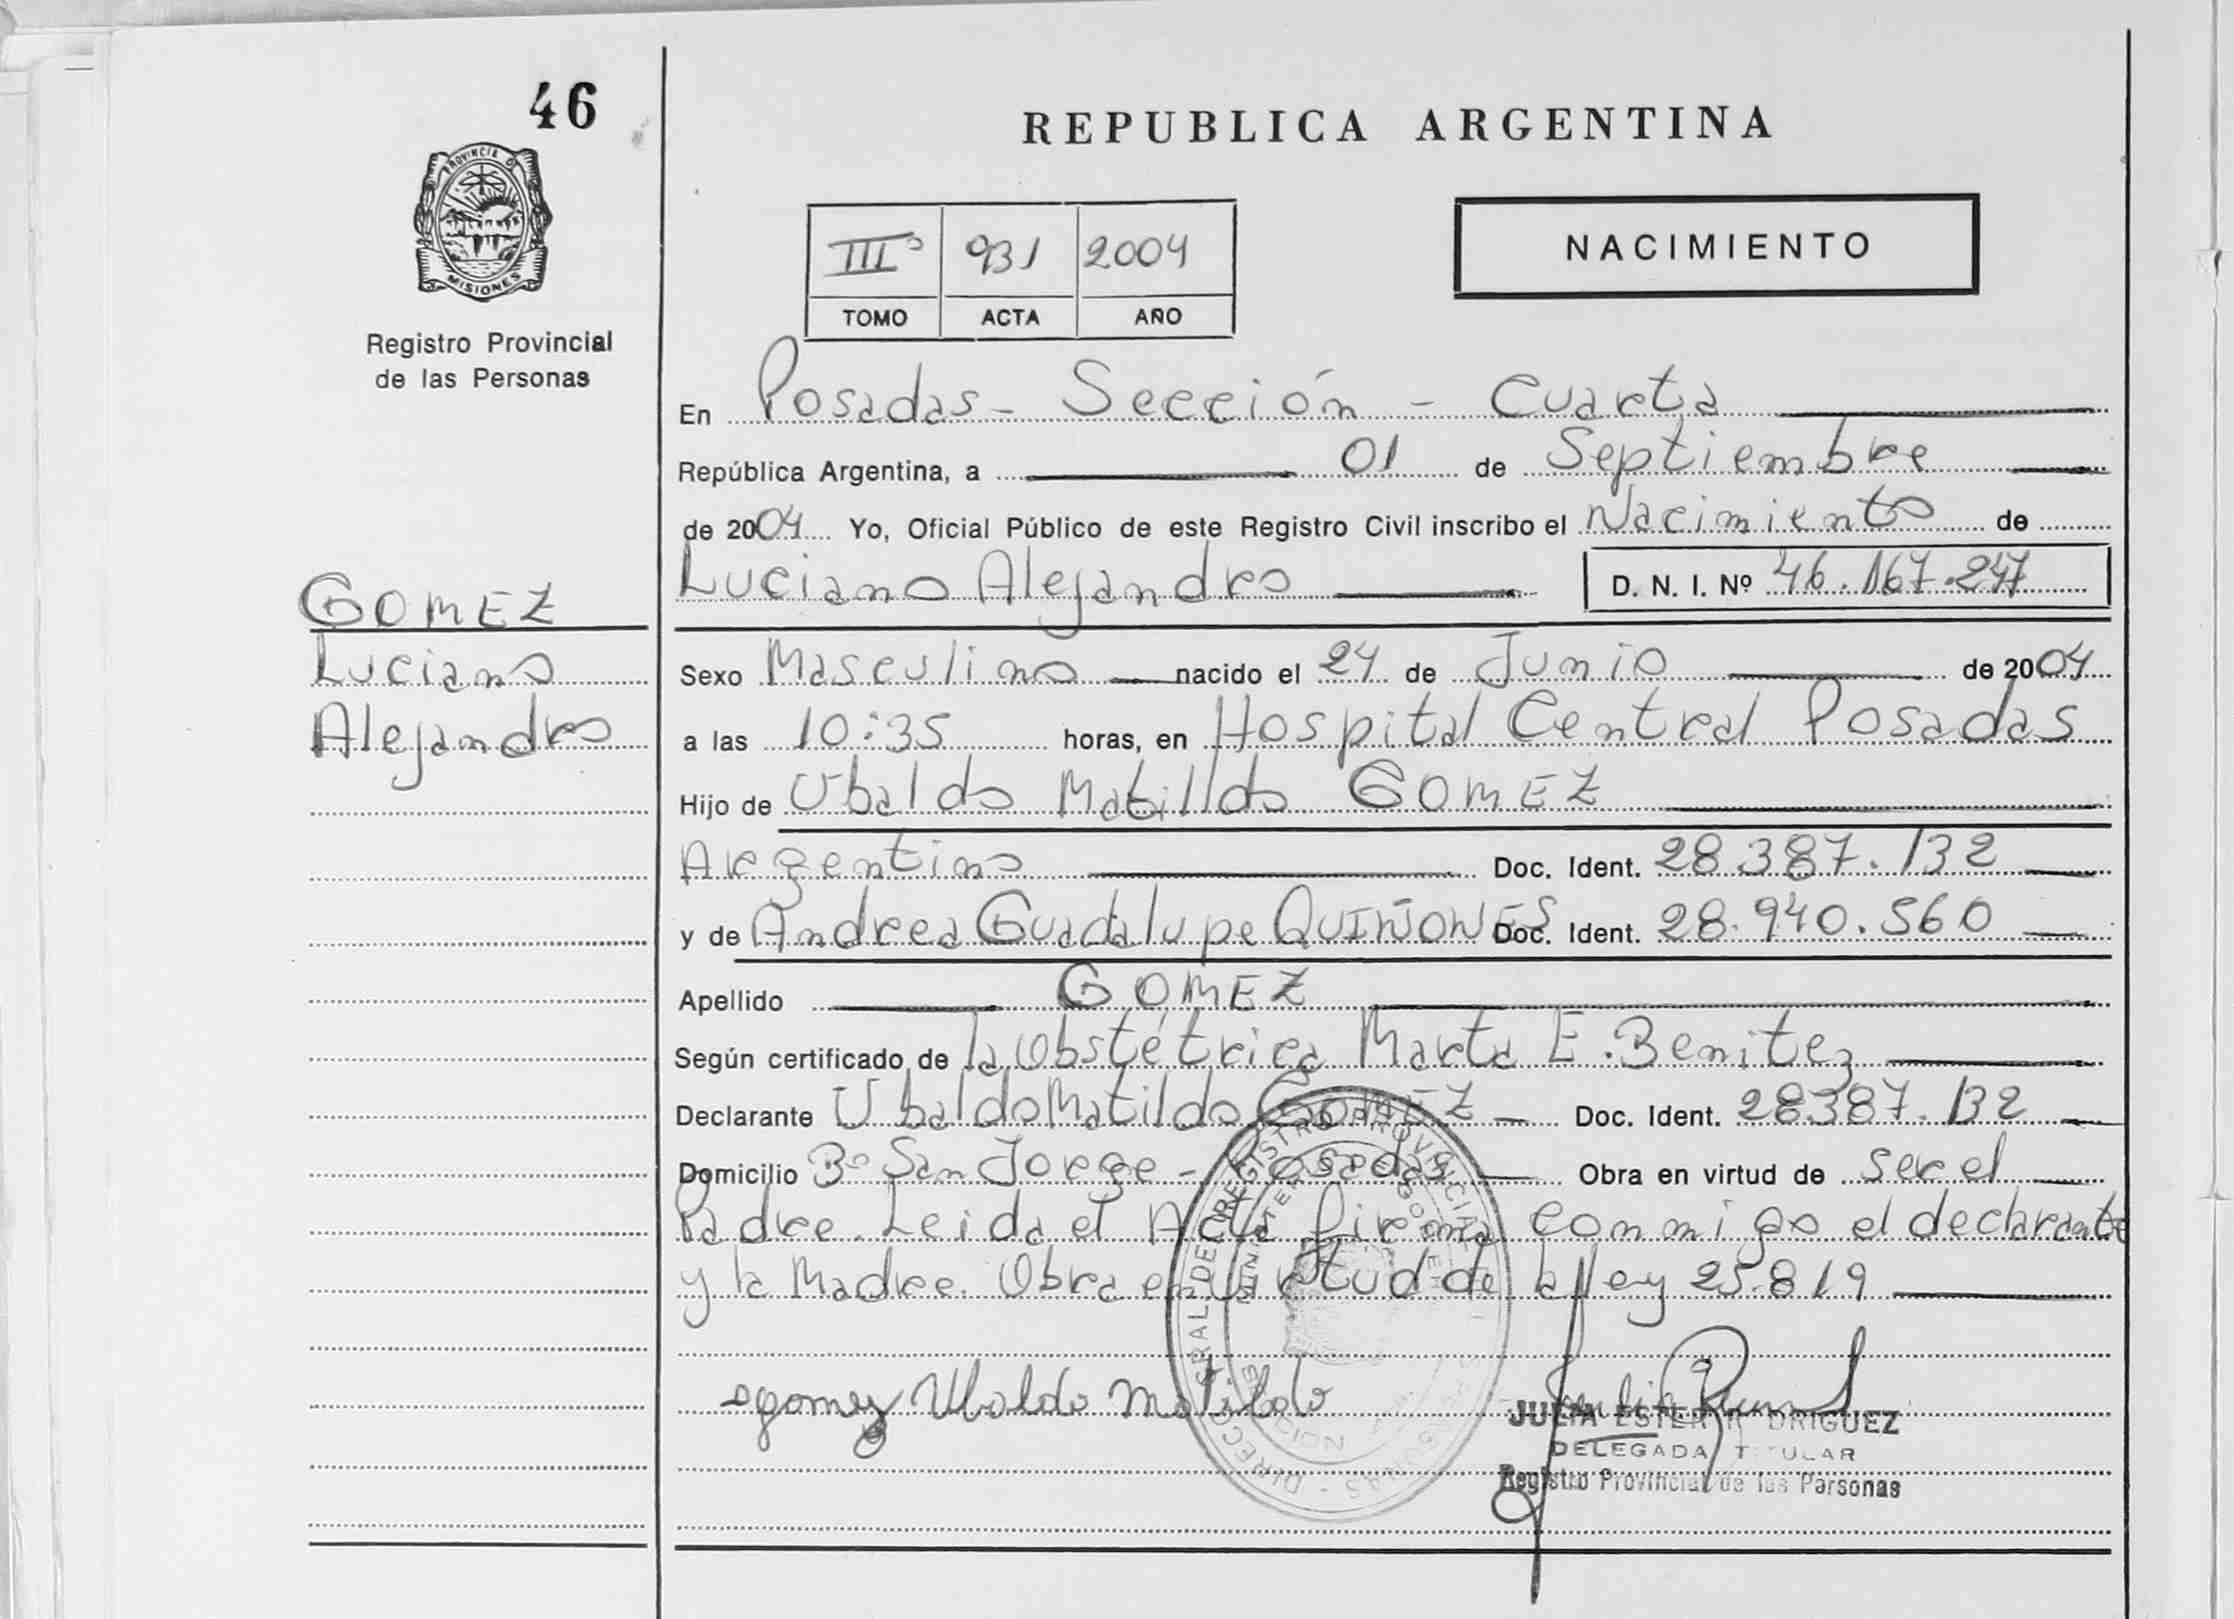 46
PROVINCIA D
MISIONES
Registro Provincial
de las Personas
GOMEZ
Luciano
Alejandro
REPUBLICA ARGENTINA
III° 931 2004
TOMO ACTA AÑO
NACIMIENTO
En Posadas - Sección - Cuarta
República Argentina, a 01 de Septiembre
de 2004 Yo, Oficial Público de este Registro Civil inscribo el Nacimiento de
Luciano Alejandro D. N. I. Nº 46.167.247
Sexo Masculino nacido el 24 de Junio de 2004
a las 10:35 horas, en Hospital Central Posadas
Hijo de Ubaldo Matildo GOMEZ
Argentino Doc. Ident. 28.387.132
y de Andrea Guadalupe QUIÑONES Doc. Ident. 28.940.560
Apellido GOMEZ
Según certificado de la Obstétrica Marta E. Benitez
Declarante Ubaldo Matildo GOMEZ Doc. Ident. 28387.132
Domicilio Bº San Jorge - Posadas Obra en virtud de ser el
Padre. Leida el Acta firma conmigo el declarante
y la Madre. Obra en virtud de la ley 25.819
Gomez Ubaldo Matildo
JULIA ESTER RODRIGUEZ
DELEGADA TITULAR
Registro Provincial de las Personas